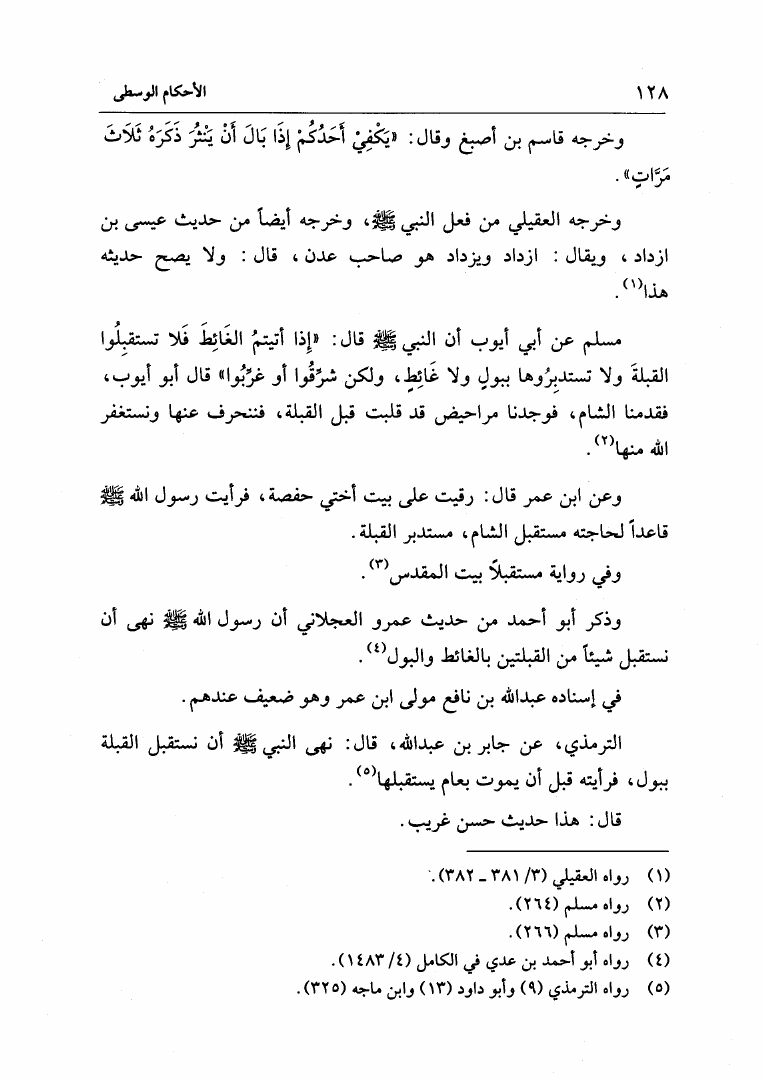 ١٢٨ الأحكام الوسطى
وخرجه قاسم بن أصبغ وقال: «يَكْفِيْ أَحَدُكُمْ إِذَا بَالَ أَنْ يَنْثُرَ ذَكَرَهُ ثَلَاثَ
مَرَّاتٍ».
وخرجه العقيلي من فعل النبي ﷺ، وخرجه أيضاً من حديث عيسى بن
ازداد، ويقال: ازداد ويزداد هو صاحب عدن، قال: ولا يصح حديثه
هذا(١).
مسلم عن أبي أيوب أن النبي ﷺ قال: «إِذا أتيتمُ الغَائِطَ فَلا تستقبِلُوا
القبلةَ ولا تستدبِرُوها ببولٍ ولا غَائِطٍ، ولكن شرِّقُوا أو غرِّبُوا» قال أبو أيوب،
فقدمنا الشام، فوجدنا مراحيض قد قلبت قبل القبلة، فننحرف عنها ونستغفر
الله منها(٢).
وعن ابن عمر قال: رقيت على بيت أختي حفصة، فرأيت رسول الله ﷺ
قاعداً لحاجته مستقبل الشام، مستدبر القبلة.
وفي رواية مستقبلاً بيت المقدس(٣).
وذكر أبو أحمد من حديث عمرو العجلاني أن رسول الله ﷺ نهى أن
نستقبل شيئاً من القبلتين بالغائط والبول(٤).
في إسناده عبدالله بن نافع مولى ابن عمر وهو ضعيف عندهم.
الترمذي، عن جابر بن عبدالله، قال: نهى النبي ﷺ أن نستقبل القبلة
ببول، فرأيته قبل أن يموت بعام يستقبلها(٥).
قال: هذا حديث حسن غريب.
(١) رواه العقيلي (٣/ ٣٨١ ـ ٣٨٢).
(٢) رواه مسلم (٢٦٤).
(٣) رواه مسلم (٢٦٦).
(٤) رواه أبو أحمد بن عدي في الكامل (٤/ ١٤٨٣).
(٥) رواه الترمذي (٩) وأبو داود (١٣) وابن ماجه (٣٢٥).